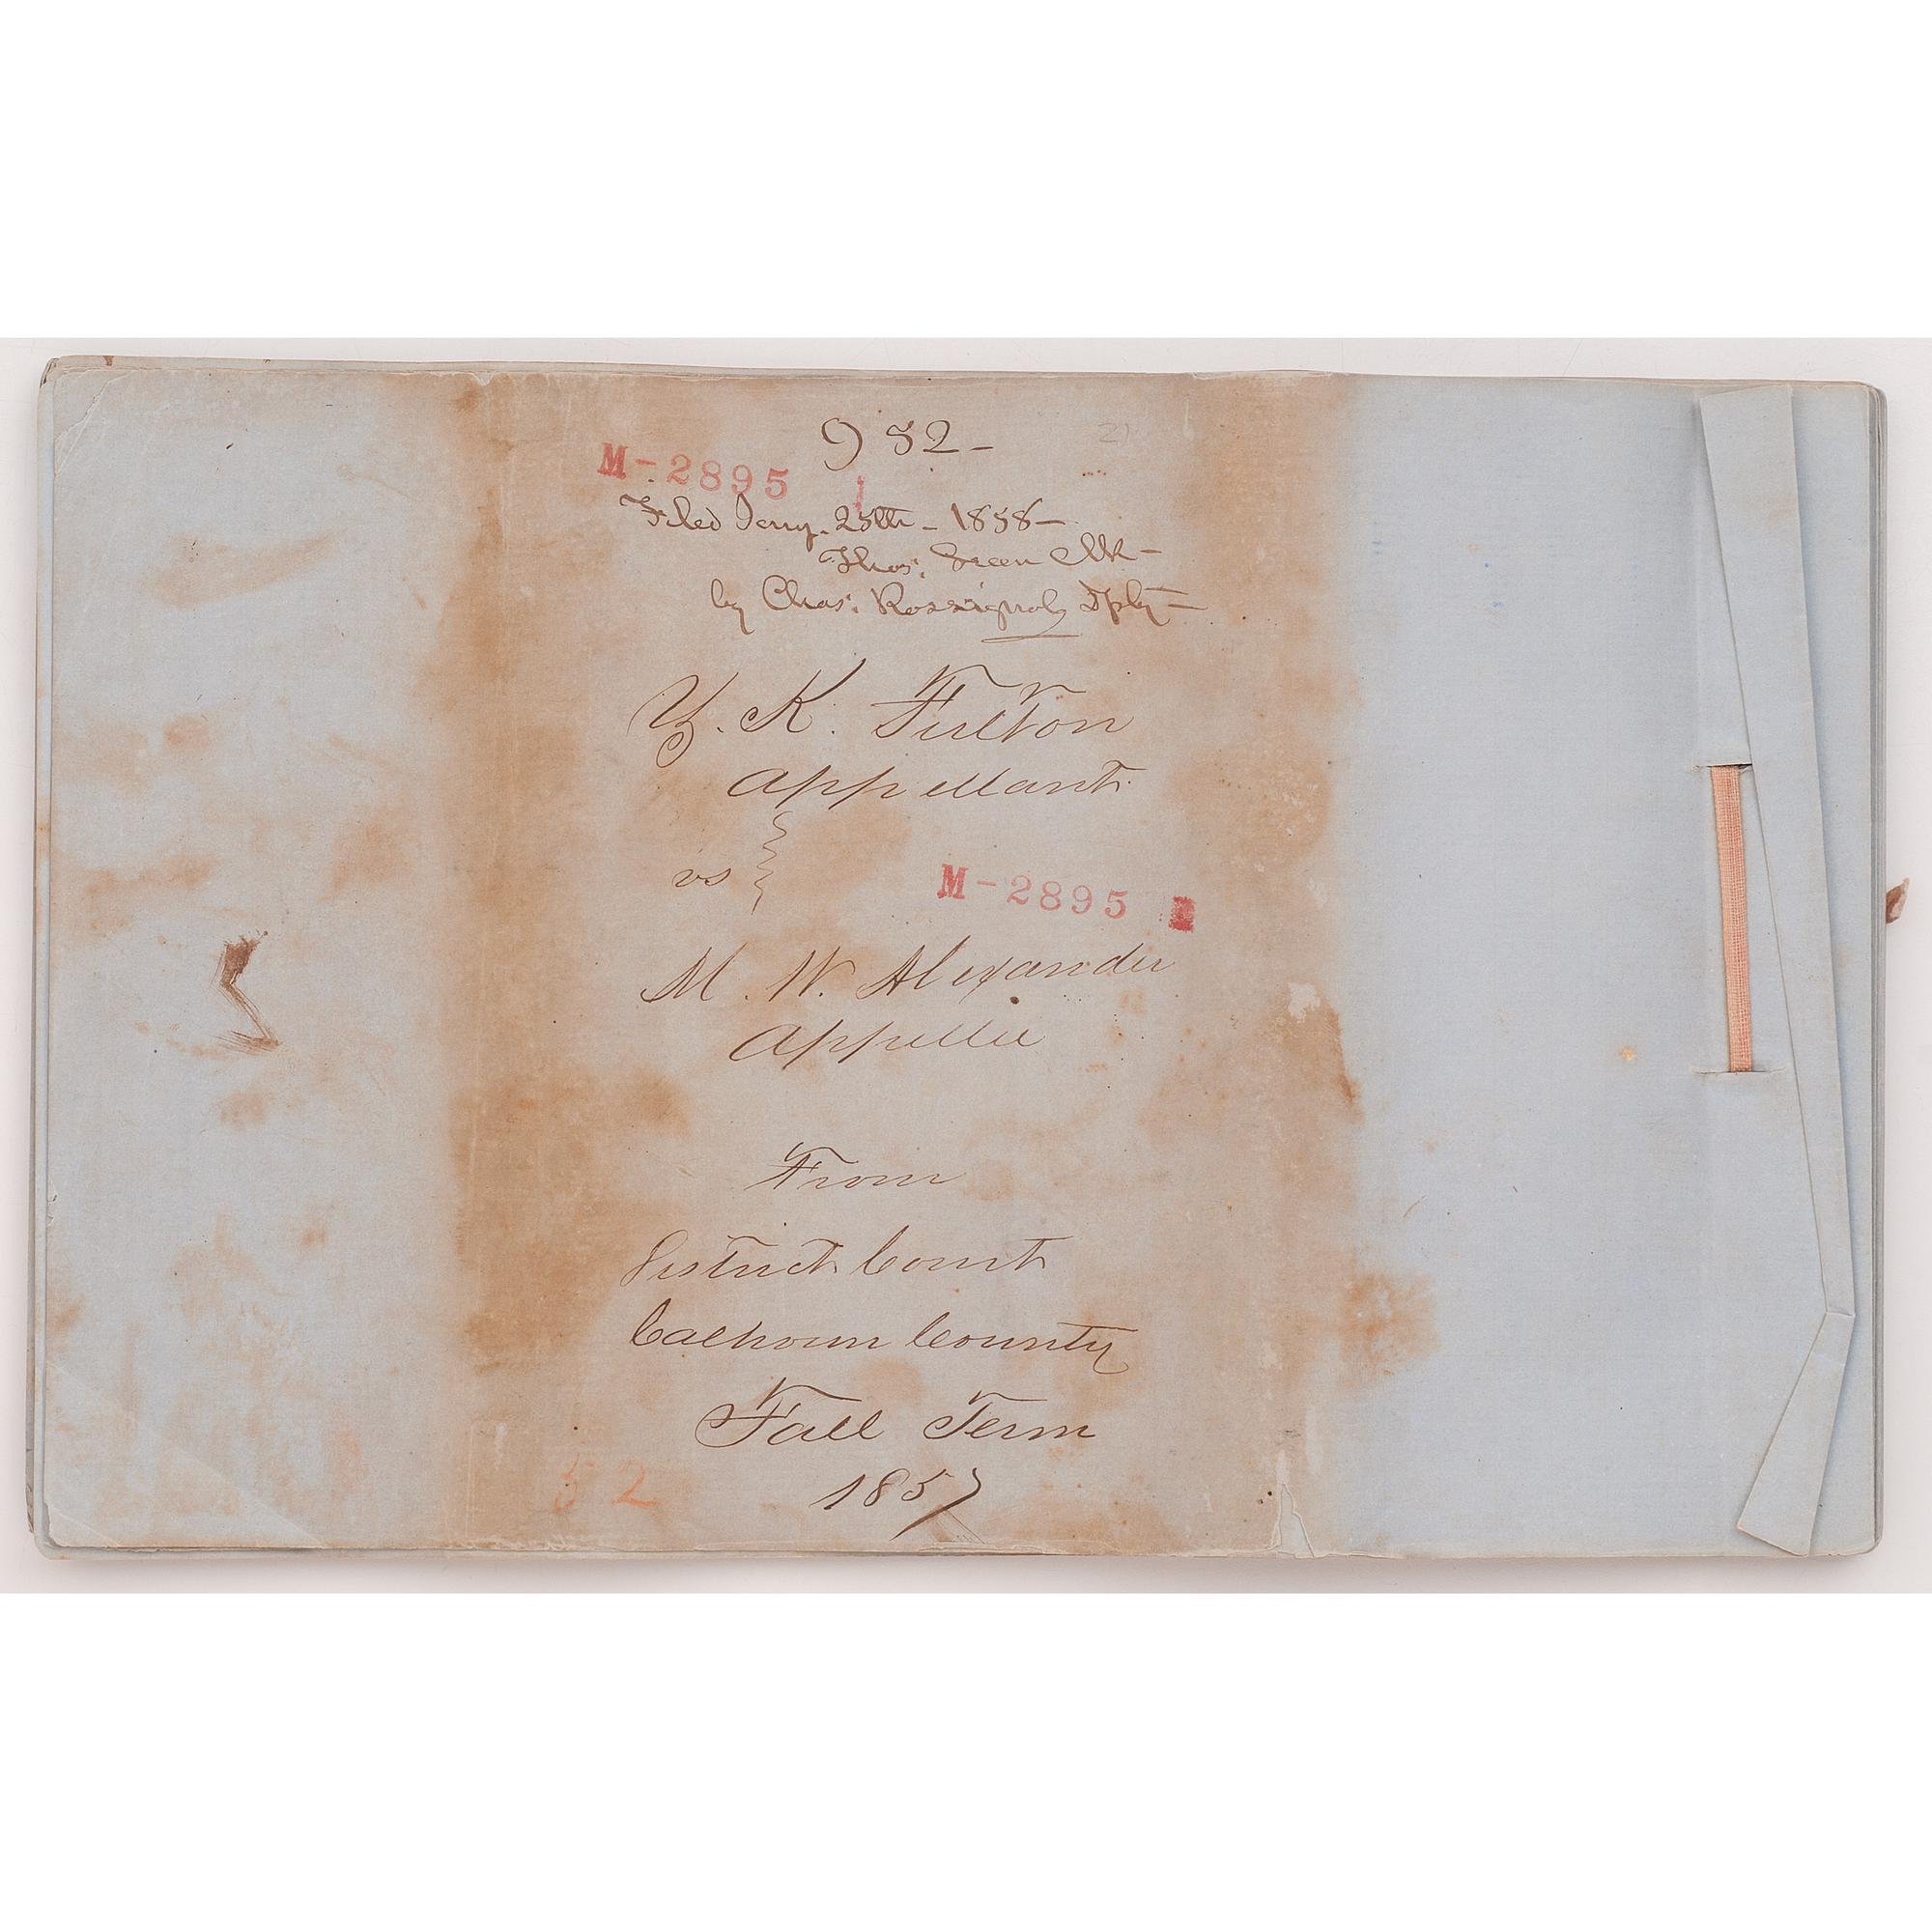 952-
M-2895
Filed Jany. 25th - 1858-
Thos: Green Clk-
by Chas: Rossignoly Dpty-
Y. K. Fulton
appellant
vs
M-2895
M. W. Alexander
appellee
From
District Court
Calhoun County
Fall Term
52
1857